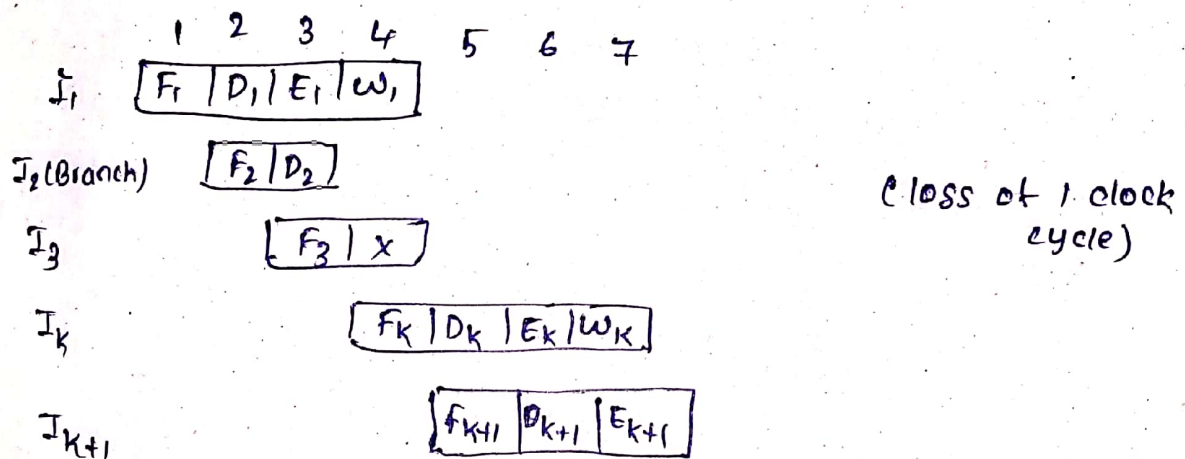 1 2 3 4 5 6 7
I₁ F₁ | D₁ | E₁ | W₁
I₂(Branch) F₂ | D₂
(loss of 1 clock
cycle)
I₃ F₃ | X
Iₖ Fₖ | Dₖ | Eₖ | Wₖ
Iₖ₊₁ Fₖ₊₁ | Dₖ₊₁ | Eₖ₊₁